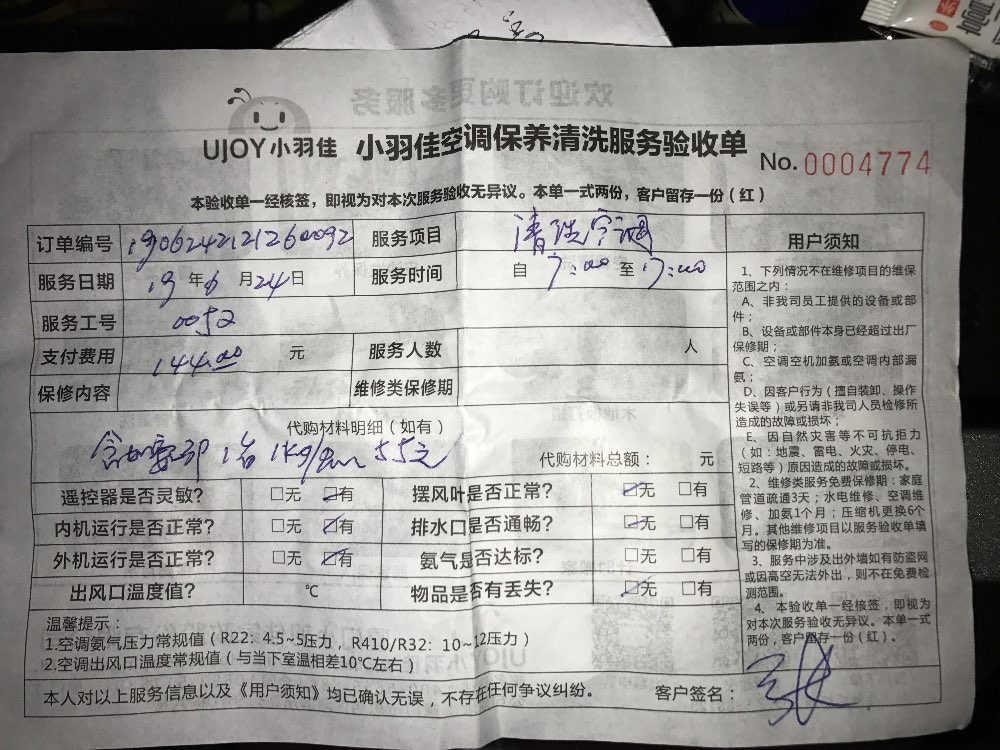 欢迎订购更多服务
UJOY小羽佳 小羽佳空调保养清洗服务验收单 No.0004774
本验收单一经核签，即视为对本次服务验收无异议。本单一式两份，客户留存一份（红）
订单编号 1906242121260092 服务项目 清洗空调
服务日期 19年6月24日 服务时间 自 7:00 至 17:00
服务工号 0052
支付费用 144.00 元 服务人数 人
保修内容 维修类保修期
代购材料明细（如有）
1台 1kg 55元
代购材料总额： 元
遥控器是否灵敏？ □无 □有 摆风叶是否正常？ □无 □有
内机运行是否正常？ □无 □有 排水口是否通畅？ □无 □有
外机运行是否正常？ □无 □有 氨气是否达标？ □无 □有
出风口温度值？ ℃ 物品是否有丢失？ □无 □有
温馨提示：
1.空调氨气压力常规值（R22：4.5~5压力，R410/R32：10~12压力）
2.空调出风口温度常规值（与当下室温相差10℃左右）
本人对以上服务信息以及《用户须知》均已确认无误，不存在任何争议纠纷。 客户签名：
用户须知
1、下列情况不在维修项目的维保
范围之内：
A、非我司员工提供的设备或部
件；
B、设备或部件本身已经超过出厂
保修期；
C、空调空机加氨或空调内部漏
氨；
D、因客户行为（擅自装卸、操作
失误等）或另请非我司人员检修所
造成的故障或损坏；
E、因自然灾害等不可抗拒力
（如：地震、雷电、火灾、停电、
短路等）原因造成的故障或损坏。
2、维修类服务免费保修期：家庭
管道疏通3天；水电维修、空调维
修、加氨1个月；压缩机更换6个
月。其他维修项目以服务验收单填
写的保修期为准。
3、服务中涉及出外墙如有防盗网
或因高空无法外出，则不在免费检
测范围。
4、本验收单一经核签，即视为
对本次服务验收无异议。本单一式
两份，客户留存一份（红）。